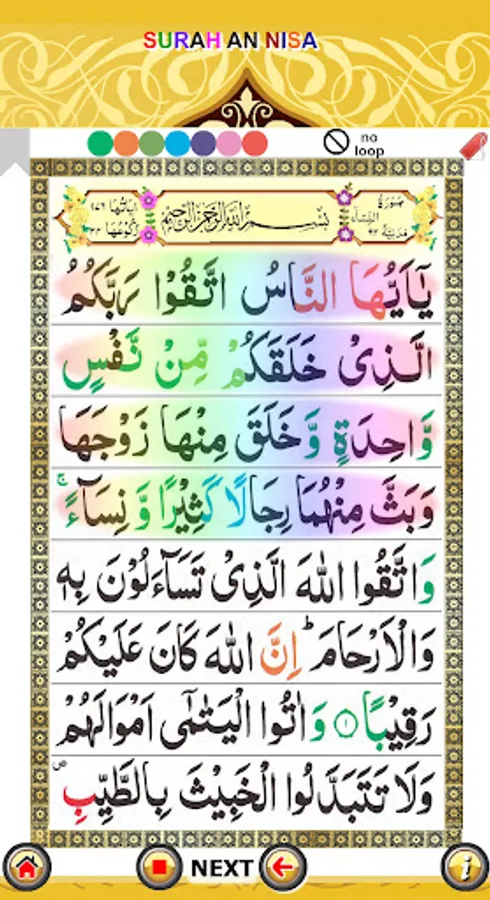 SURAH AN NISA
no
loop
سُوْرَةُ النِّسَآءِ مَدَنِيَّةٌ
بِسْمِ اللّٰهِ الرَّحْمٰنِ الرَّحِيْمِ
اٰيَاتُهَا ١٧٦
يٰۤاَيُّهَا النَّاسُ اتَّقُوْا رَبَّكُمُ
الَّذِىْ خَلَقَكُمْ مِّنْ نَّفْسٍ
وَّاحِدَةٍ وَّخَلَقَ مِنْهَا زَوْجَهَا
وَبَثَّ مِنْهُمَا رِجَالًا كَثِيْرًا وَّنِسَآءً ۚ
وَاتَّقُوا اللّٰهَ الَّذِىْ تَسَآءَلُوْنَ بِهٖ
وَالْاَرْحَامَ ؕ اِنَّ اللّٰهَ كَانَ عَلَيْكُمْ
رَقِيْبًا ۝١ وَاٰتُوا الْيَتٰمٰٓى اَمْوَالَهُمْ
وَلَا تَتَبَدَّلُوا الْخَبِيْثَ بِالطَّيِّبِ ۖ
NEXT
i